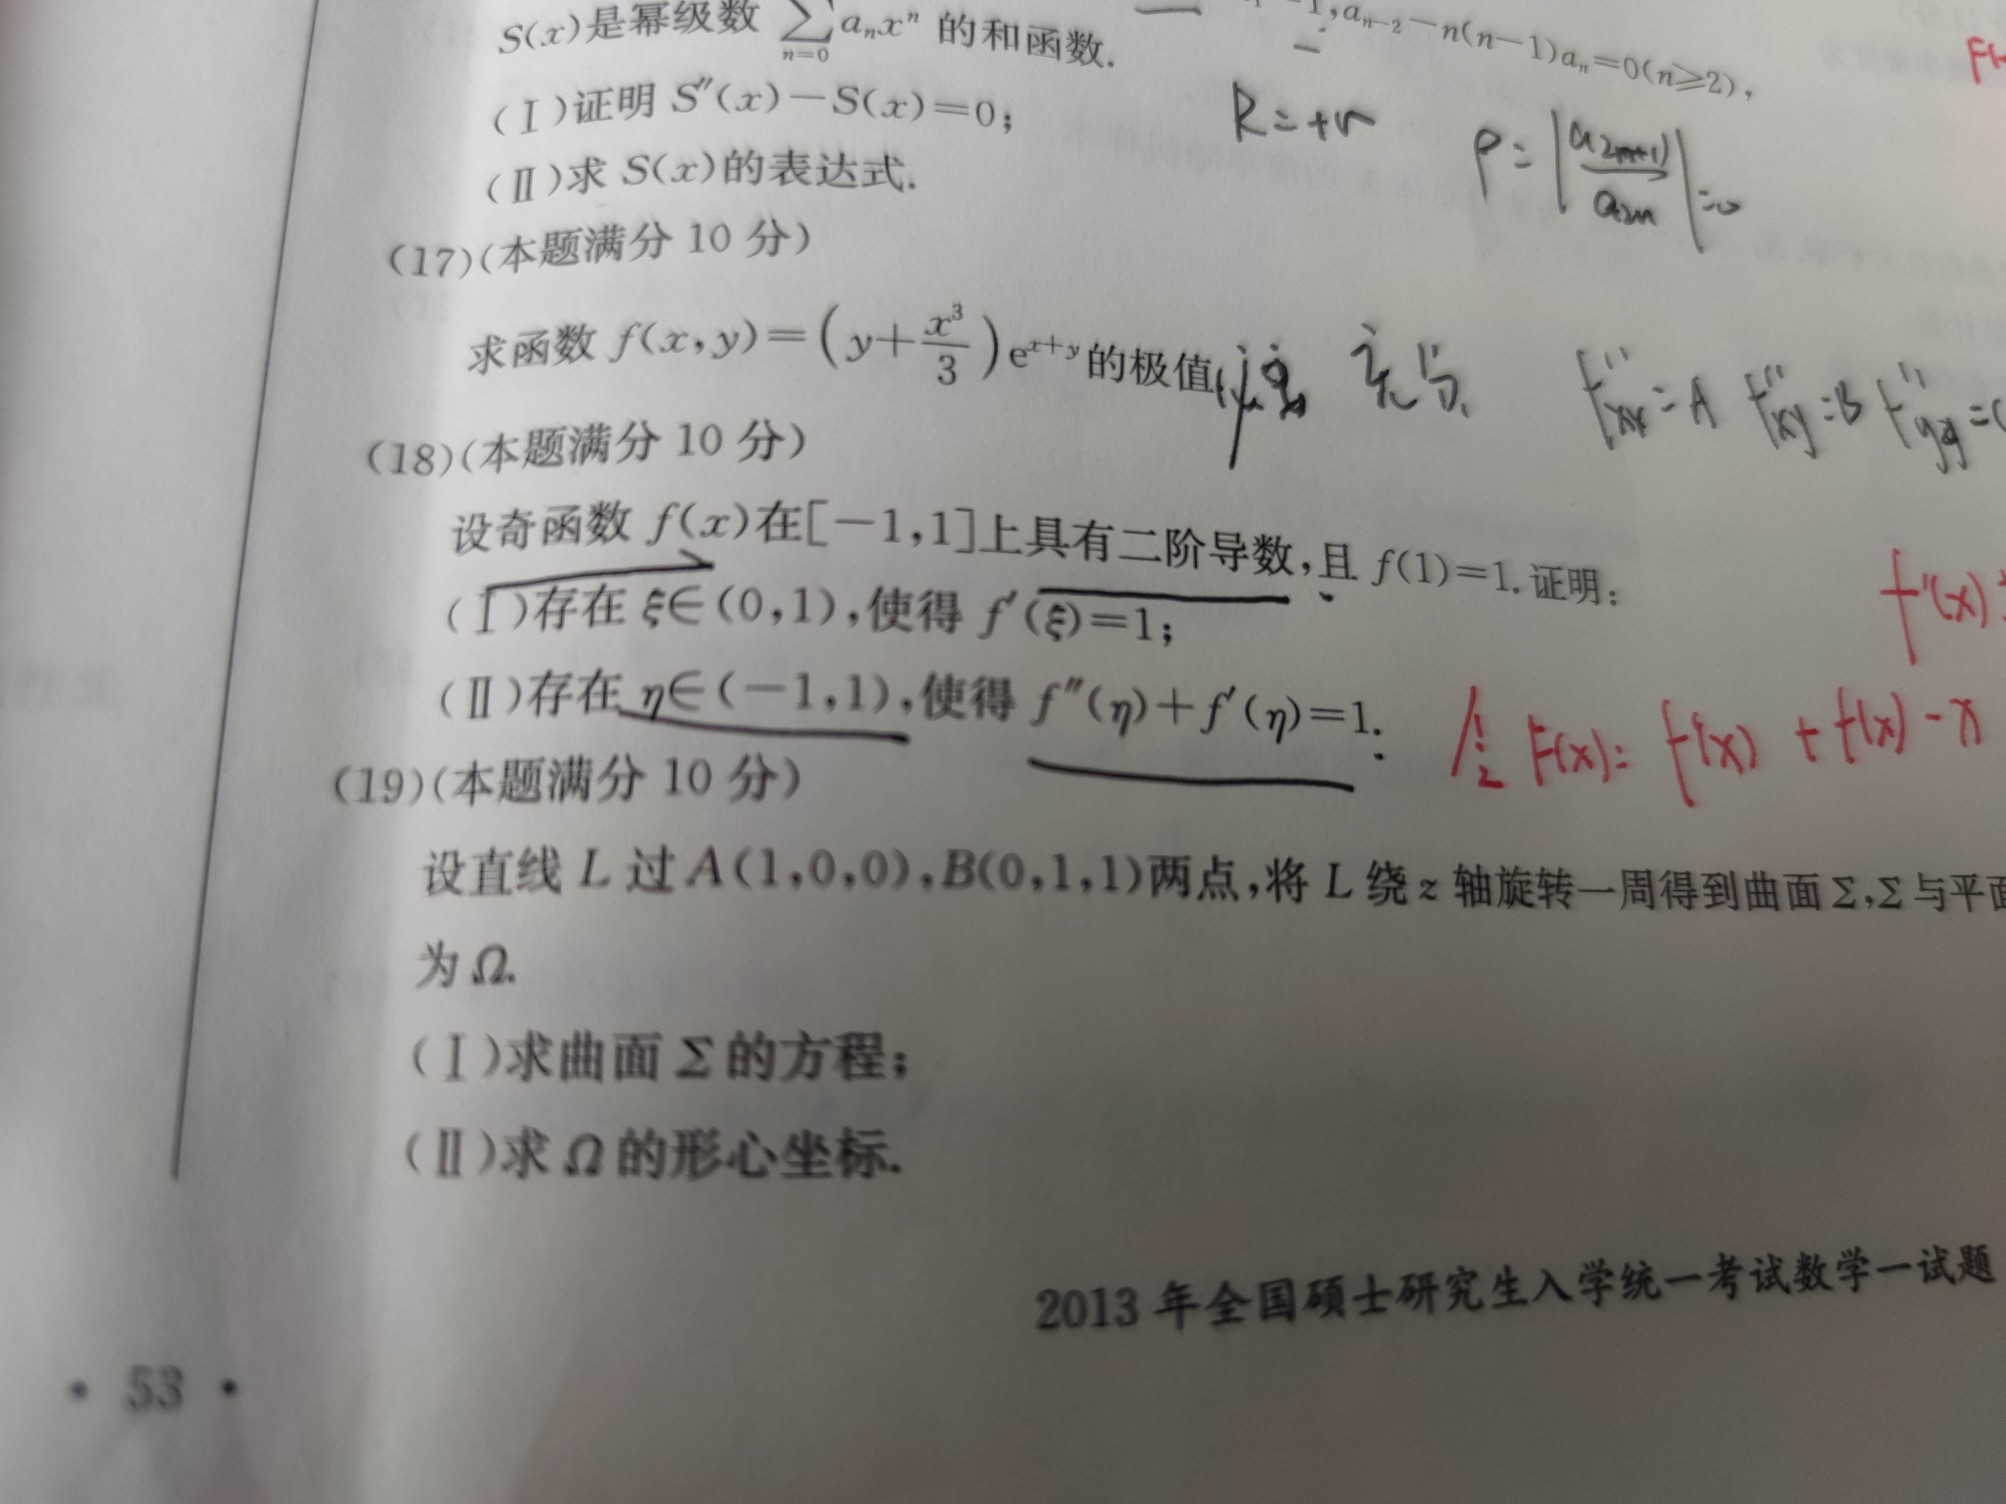 S(x)是幂级数 ∑ aₙxⁿ 的和函数. aₙ₋₂-n(n-1)aₙ=0(n≥2),
n=0
(Ⅰ)证明 S″(x)-S(x)=0;
R=+
ρ=|a₂₍ₙ₊₁₎/a₂ₙ|=0
(Ⅱ)求 S(x)的表达式.
(17)(本题满分 10 分)
求函数 f(x,y)=(y+x³/3)eˣ⁺ʸ的极值.
f″xx=A f″xy=B f″yy=C
(18)(本题满分 10 分)
设奇函数 f(x)在[-1,1]上具有二阶导数,且 f(1)=1.证明:
(Ⅰ)存在 ξ∈(0,1),使得 f′(ξ)=1;
f″(x)
(Ⅱ)存在 η∈(-1,1),使得 f″(η)+f′(η)=1.
F(x)= f′(x) + f(x) - x
(19)(本题满分 10 分)
设直线 L 过 A(1,0,0),B(0,1,1)两点,将 L 绕 z 轴旋转一周得到曲面 Σ,Σ 与平面
为 Ω.
(Ⅰ)求曲面 Σ 的方程;
(Ⅱ)求 Ω 的形心坐标.
2013 年全国硕士研究生入学统一考试数学一试题
· 53 ·